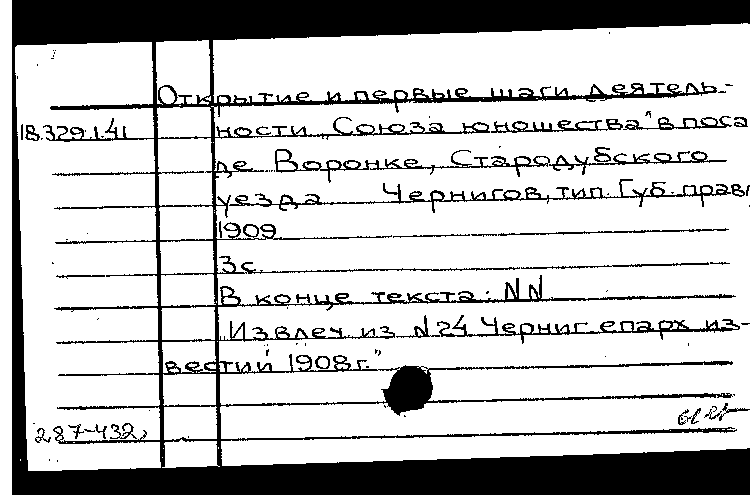 Открытие и первые шаги деятель-
18.329.1.41 ности „Союза юношества" в поса
де Воронке, Стародубского
уезда Чернигов, тип. Губ. правл
1909.
3с.
В конце текста: NN
„Извлеч из N24 Черниг. епарх из-
вестий 1908г."
287-432,